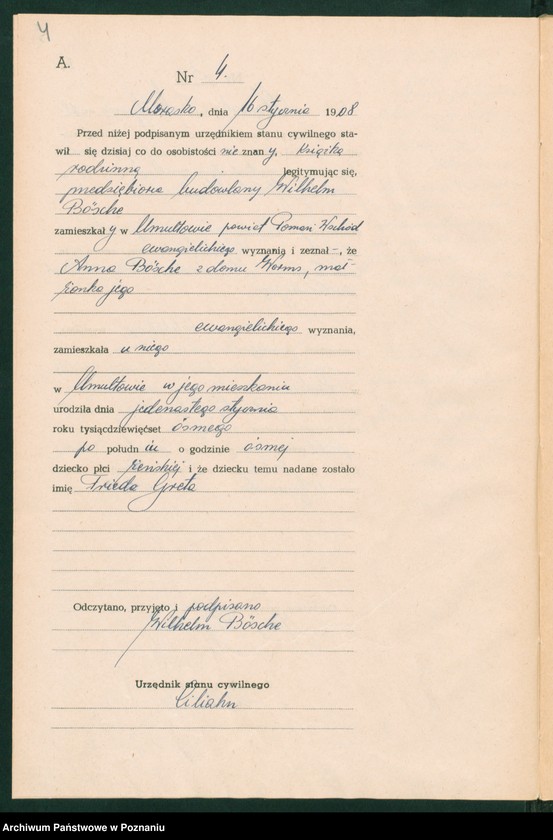 4
A.
Nr 4.
Morasko, dnia 16 stycznia 1908
Przed niżej podpisanym urzędnikiem stanu cywilnego sta-
wił się dzisiaj co do osobistości nie znany, książką
rodzinną legitymując się,
przedsiębiorca budowlany Wilhelm
Bösche
zamieszkały w Umultowie powiat Poznań Wschód
ewangielickiego wyznania i zeznał –, że
Anna Bösche z domu Worms, mał-
żonka jego
ewangielickiego wyznania,
zamieszkała u niego
w Umultowie w jego mieszkaniu
urodziła dnia jedenastego stycznia
roku tysiącdziewięćset ósmego
po południu o godzinie ósmej
dziecko płci żeńskiej i że dziecku temu nadane zostało
imię Frieda Greta
Odczytano, przyjęto i podpisano
Wilhelm Bösche
Urzędnik stanu cywilnego
Archiwum Państwowe w Poznaniu